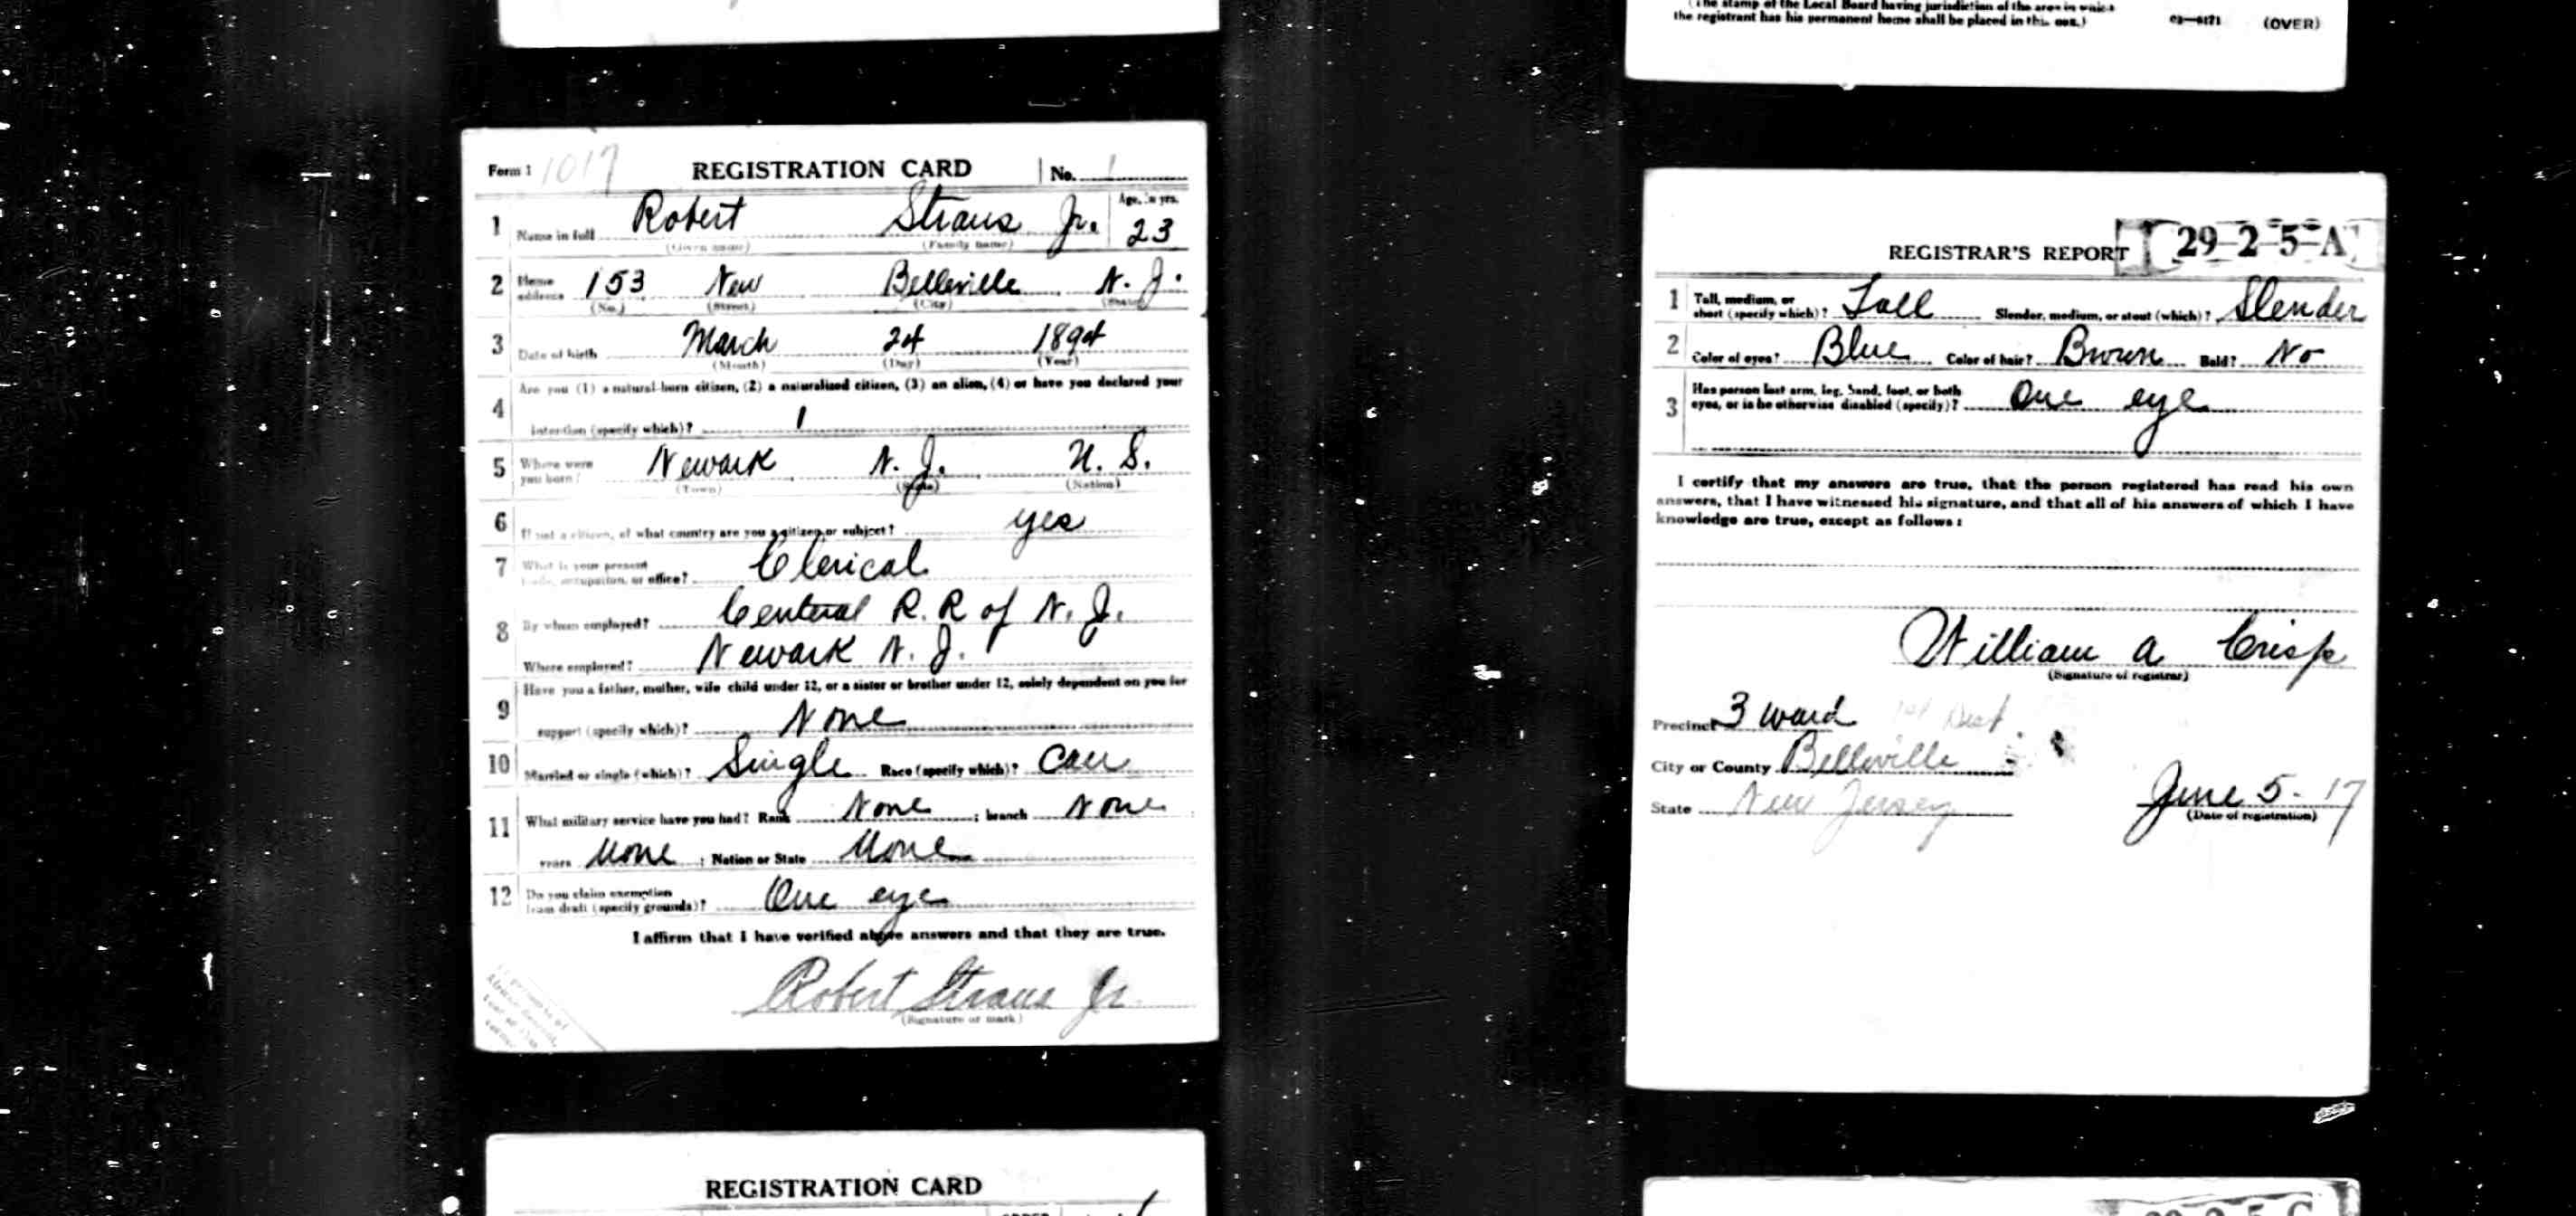 (The stamp of the Local Board having jurisdiction of the area in which
the registrant has his permanent home shall be placed in this box.)
03—6171 (OVER)
Form 1 1017 REGISTRATION CARD No. 1
1 Name in full Robert Straus Jr. Age, in yrs. 23
(Given name) (Family name)
2 Home address 153 New Belleville N. J.
(No.) (Street) (City) (State)
3 Date of birth March 24 1894
(Month) (Day) (Year)
4 Are you (1) a natural-born citizen, (2) a naturalized citizen, (3) an alien, (4) or have you declared your
intention (specify which)? 1
5 Where were you born? Newark N. J. U. S.
(Town) (State) (Nation)
6 If not a citizen, of what country are you a citizen or subject? yes
7 What is your present trade, occupation, or office? Clerical
8 By whom employed? Central R. R of N. J.
Where employed? Newark N. J.
9 Have you a father, mother, wife child under 12, or a sister or brother under 12, solely dependent on you for
support (specify which)? None
10 Married or single (which)? Single Race (specify which)? Cau
11 What military service have you had? Rank None ; branch None
years None ; Nation or State None
12 Do you claim exemption from draft (specify grounds)? One eye
I affirm that I have verified above answers and that they are true.
Robert Straus Jr.
(Signature or mark)
REGISTRATION CARD
REGISTRAR'S REPORT 29-2-5-A
1 Tall, medium, or short (specify which)? Tall Slender, medium, or stout (which)? Slender
2 Color of eyes? Blue Color of hair? Brown Bald? No
3 Has person lost arm, leg, hand, foot, or both
eyes, or is he otherwise disabled (specify)? One eye
I certify that my answers are true, that the person registered has read his own
answers, that I have witnessed his signature, and that all of his answers of which I have
knowledge are true, except as follows:
William A Crisp
(Signature of registrar)
Precinct 3 ward 1st Dist.
City or County Belleville
State New Jersey June 5-17
(Date of registration)